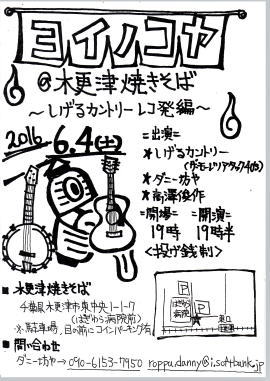 ヨイノコヤ
@木更津焼きそば
～しげるカントリーレコ発編～
2016 6.4(土)
=出演=
★しげるカントリー
★ダニー坊や
★高澤俊作
=開場= =開演=
19時 19時半
<投げ銭制>
■木更津焼きそば
千葉県木更津市東中央1-1-7
(はぎわら病院前)
※駐車場、目の前にコインパーキング有
■問い合わせ
ダニー坊や→090-6153-7950 roppu.danny@i.softbank.jp
P
はぎわら病院
P
東口